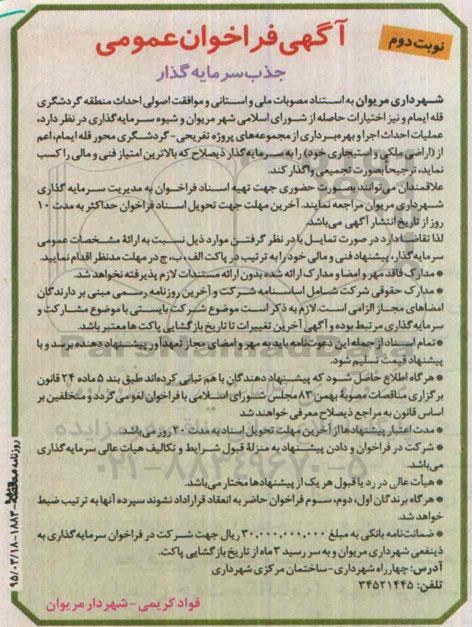 نوبت دوم
آگهی فراخوان عمومی
جذب سرمایه گذار
شهرداری مریوان به استناد مصوبات ملی و استانی و موافقت اصولی احداث منطقه گردشگری
قله ایمام و نیز اختیارات حاصله از شورای اسلامی شهر مریوان و شیوه سرمایه‌گذاری در نظر دارد،
عملیات احداث اجرا و بهره‌برداری از مجموعه‌های پروژه تفریحی-گردشگری محور قله ایمام، اعم
از (اراضی ملکی و استیجاری خود) را به سرمایه‌گذار ذیصلاح که بالاترین امتیاز فنی و مالی را کسب
نماید، ترجیحاً بصورت تجمیعی واگذار کند.
علاقمندان می‌توانند بصورت حضوری جهت تهیه اسناد فراخوان به مدیریت سرمایه گذاری
شهرداری مریوان مراجعه نمایند. آخرین مهلت جهت تحویل اسناد فراخوان حداکثر به مدت ۱۰
روز از تاریخ انتشار آگهی می‌باشد.
لذا تقاضا دارد در صورت تمایل با در نظر گرفتن موارد ذیل نسبت به ارائهٔ مشخصات عمومی
سرمایه گذار، پیشنهاد فنی و مالی خود را به ترتیب در پاکت الف، ب، ج در مهلت مدنظر اقدام نمایید.
● مدارک فاقد مهر و امضا و مدارک ارائه شده بدون ارائه مستندات لازم پذیرفته نخواهد شد.
● مدارک حقوقی شرکت شامل اساسنامه شرکت و آخرین روزنامه رسمی مبنی بر دارندگان
امضاهای مجاز الزامی است. لازم به ذکر است موضوع شرکت بایستی با موضوع مشارکت و
سرمایه‌گذاری مرتبط بوده و آگهی آخرین تغییرات تا تاریخ بازگشایی پاکت ها معتبر باشد.
● تمام اسناد از جمله این دعوت‌نامه باید به مهر و امضای مجاز تعهدآور پیشنهاد دهنده برسد و با
پیشنهاد قیمت تسلیم شود.
● هرگاه اطلاع حاصل شود که پیشنهاد دهندگان با هم تبانی کرده‌اند طبق بند ۵ ماده ۲۴ قانون
برگزاری مناقصات مصوبهٔ بهمن ۸۳ مجلس شورای اسلامی با فراخوان لغو می گردد و متخلفین بر
اساس قانون به مراجع ذیصلاح معرفی خواهند شد
● مدت اعتبار پیشنهادها از آخرین مهلت تحویل اسناد به مدت ۲۰ روز می‌باشد.
● شرکت در فراخوان و دادن پیشنهاد به منزلهٔ قبول شرایط و تکالیف هیات عالی سرمایه‌گذاری
می‌باشد.
● هیأت عالی در رد یا قبول هر یک از پیشنهادها مختار می‌باشد.
● هرگاه برندگان اول، دوم، سوم فراخوان حاضر به انعقاد قرارداد نشوند سپرده آنها به ترتیب ضبط
خواهد شد.
● ضمانت‌نامه بانکی به مبلغ ۳۰,۰۰۰,۰۰۰,۰۰۰ ریال جهت شرکت در فراخوان سرمایه‌گذاری به
ذینفعی شهرداری مریوان و به سر رسید ۳ ماه از تاریخ بازگشایی پاکت.
آدرس: چهارراه شهرداری-ساختمان مرکزی شهرداری
تلفن: ۳۴۵۲۱۴۴۵
فواد کریمی-شهردار مریوان
۹۵/۰۳/۱۸-۱۸۸۳
روزنامه
ParsNamadData
۰۲۱-۸۸۳۴۹۶۷۰-۵